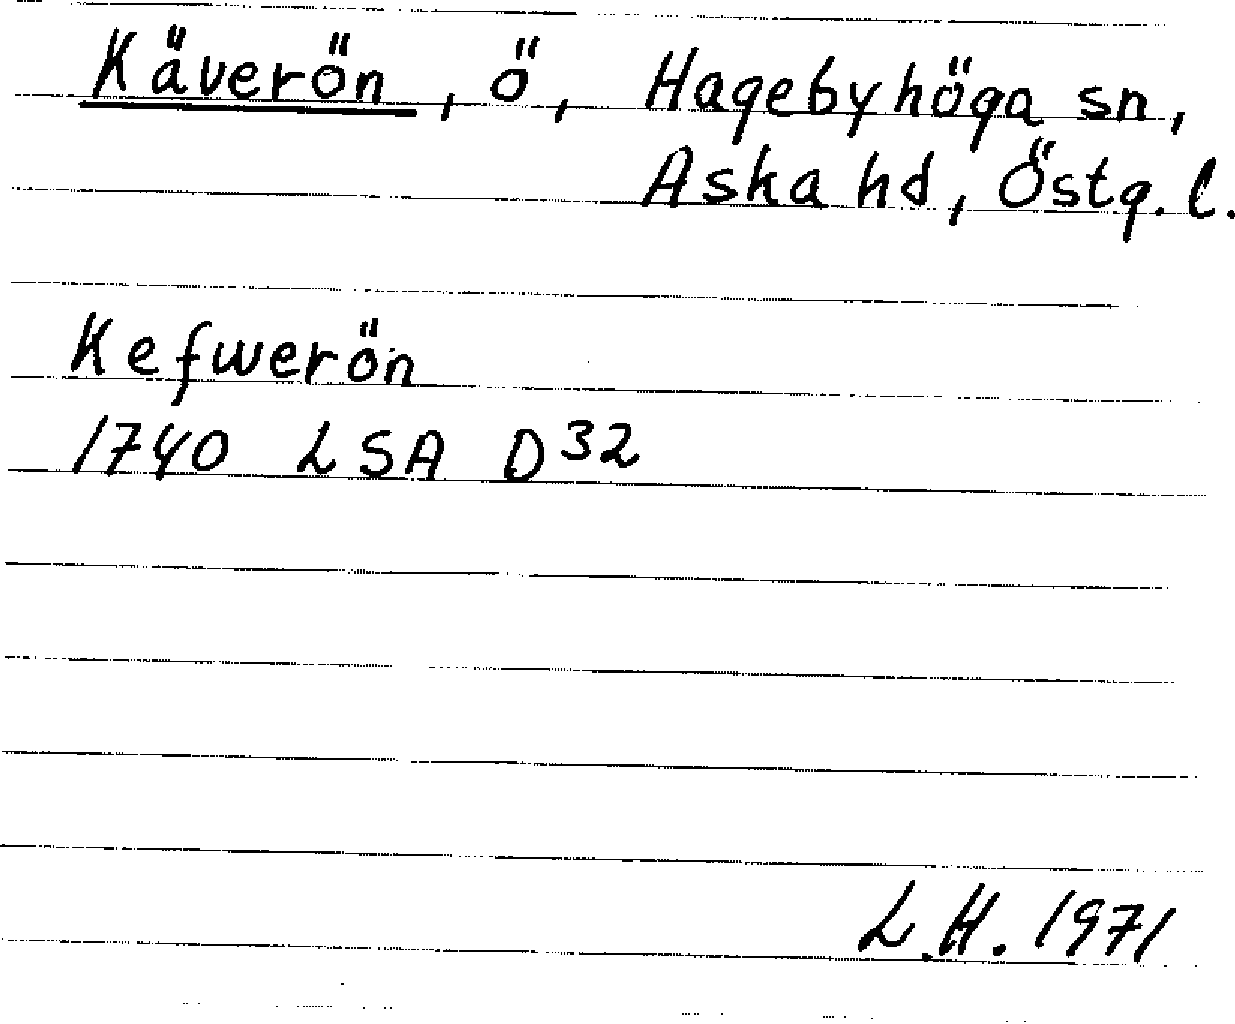 Käverön, ö, Hagebyhöga sn,
Aska hd, Östg. l.
Kefwerön
1740 LSA D32
L.H. 1971